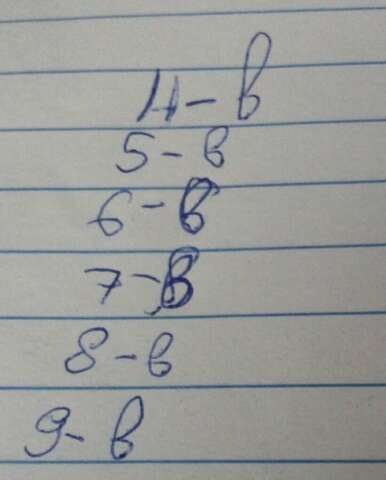 4 - в
5 - в
6 - в
7 - в
8 - в
9 - в